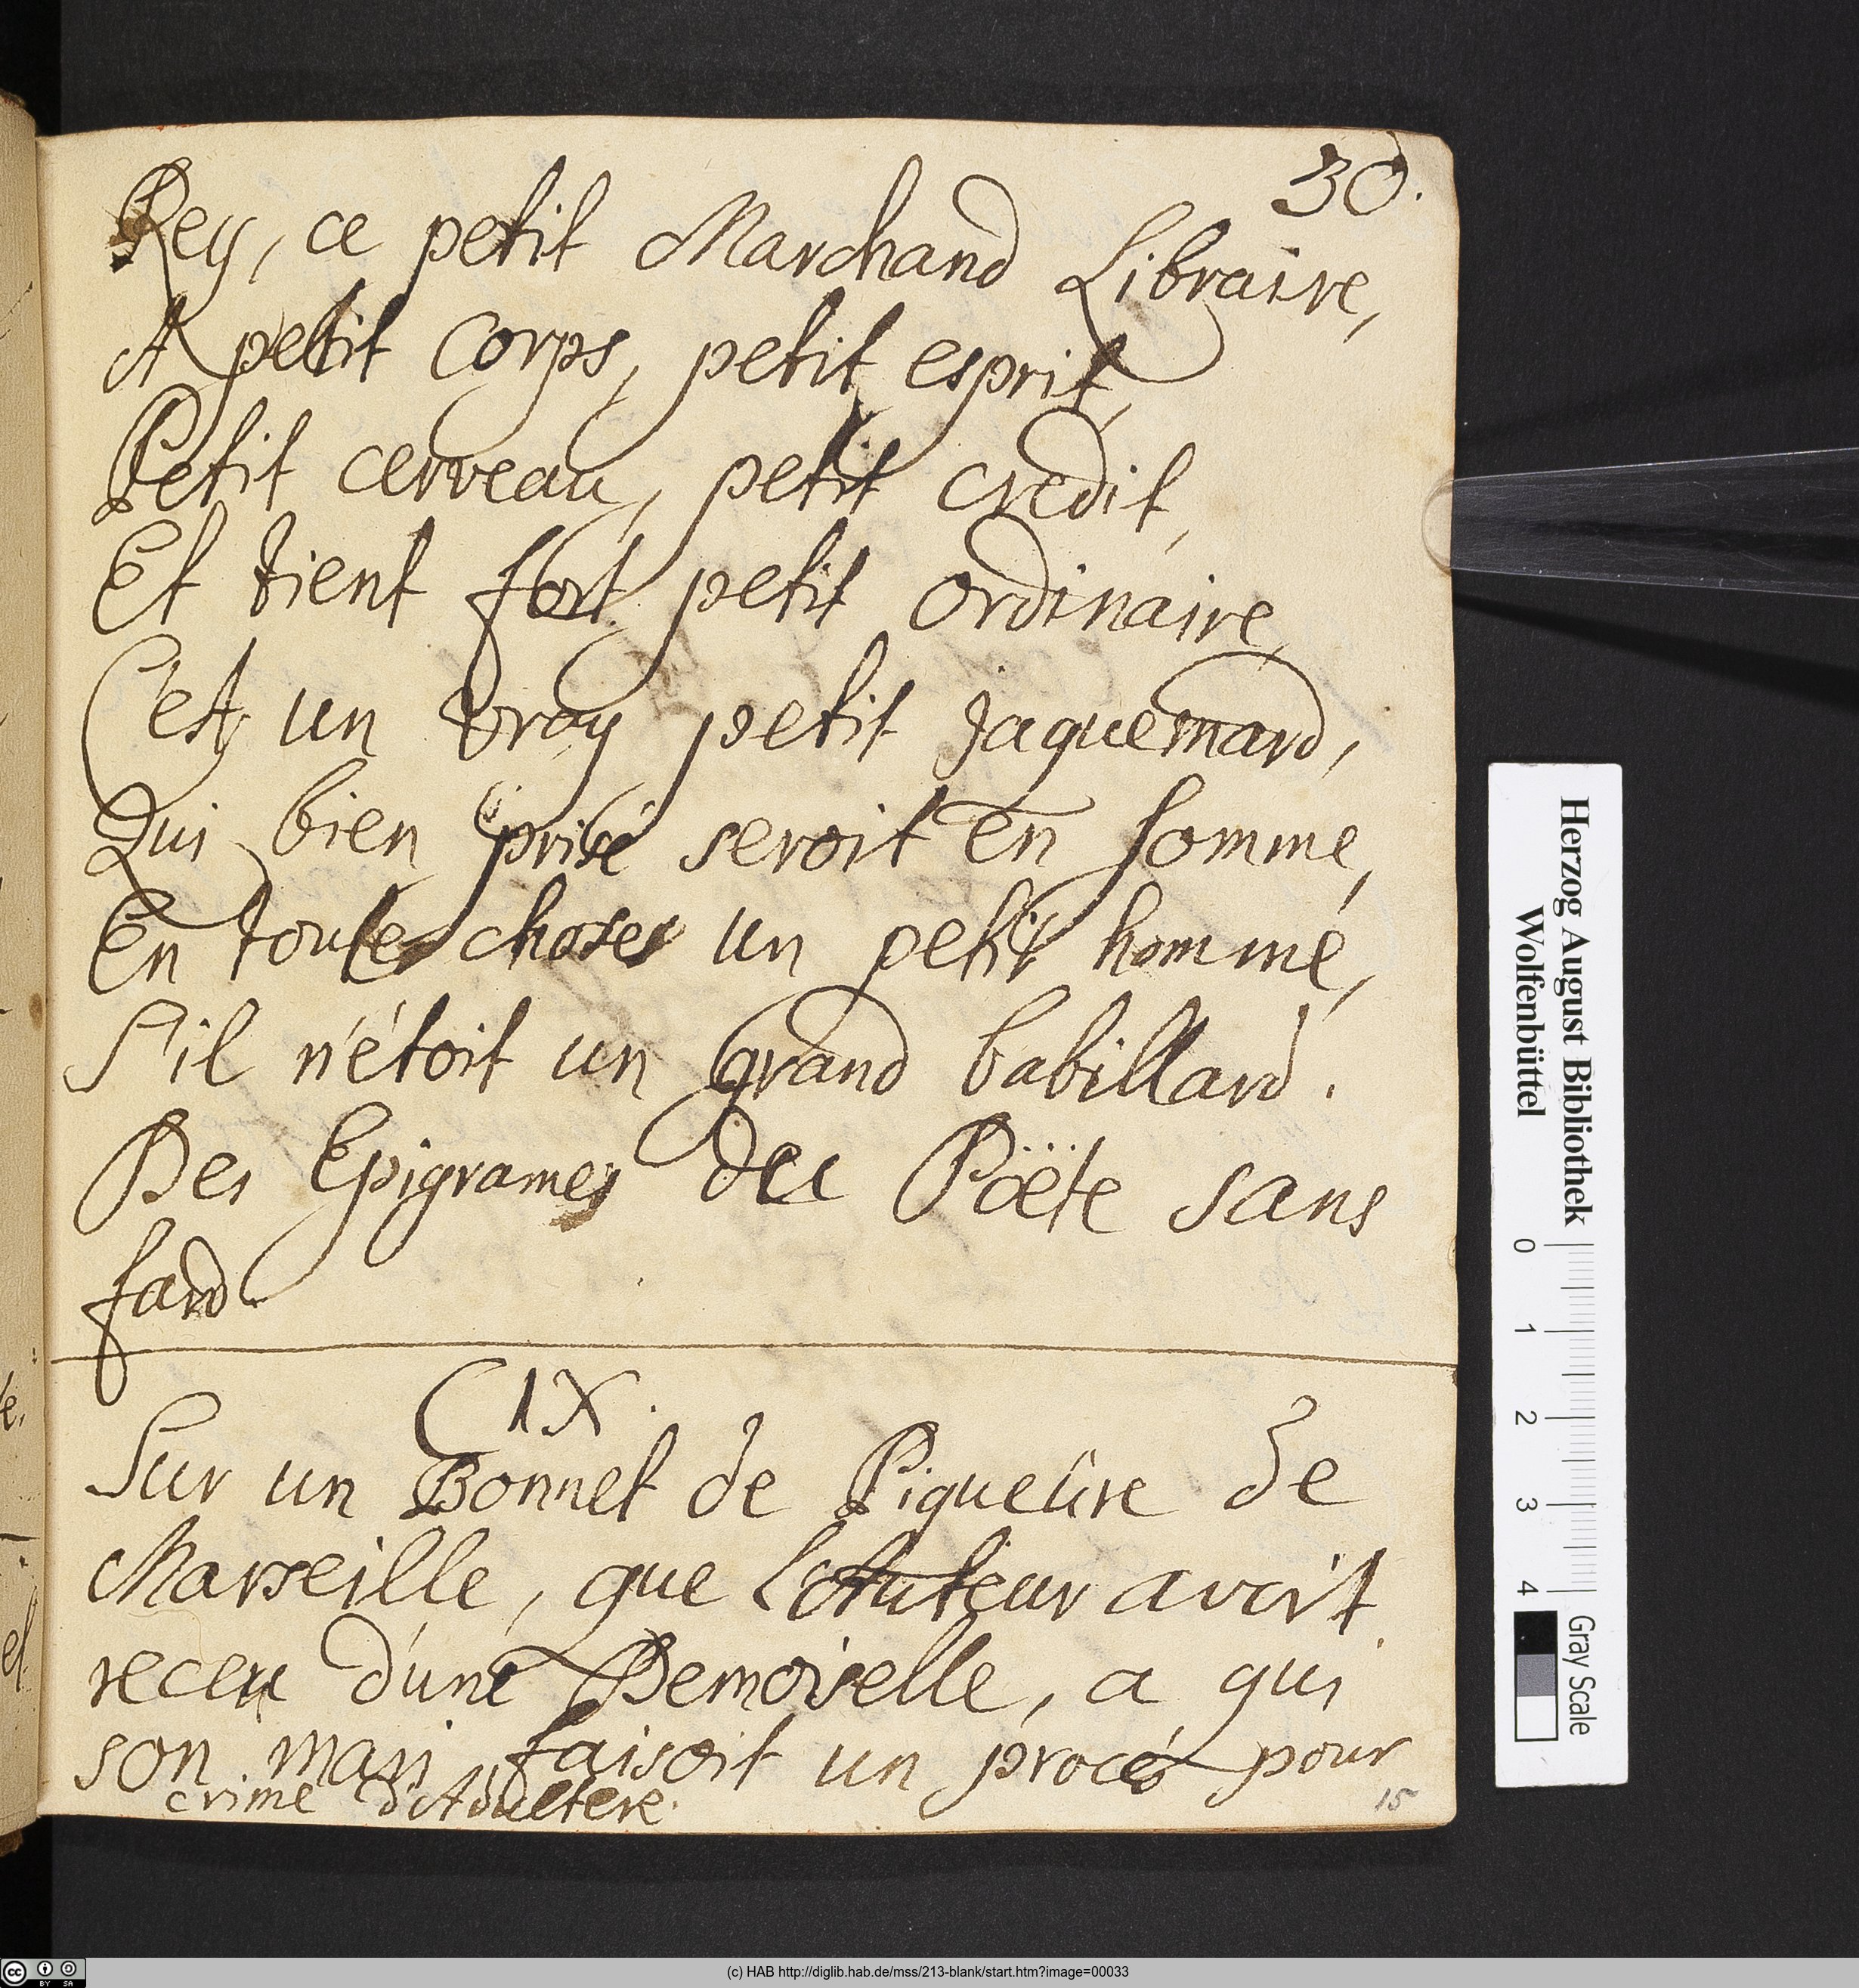 30.
Rey, ce petit Marchand Libraire,
A petit Corps, petit esprit,
Petit cerveau, petit credit,
Et tient fort petit ordinaire,
C'est un vray petit jaquemard,
Qui bien prisé seroit en somme,
En toutes choses un petit homme,
S'il n'étoit un grand babillard.
Des Epigrames du Poëte sans
fard.
CIX.
Sur un Bonnet de Piqueûre de
Marseille, que l'Auteur avoit
receu d'une Demoiselle, a qui
son mari faisoit un procés pour
crime d'Adultere.
15
Herzog August Bibliothek
Wolfenbüttel
0 1 2 3 4
Gray Scale
(c) HAB http://diglib.hab.de/mss/213-blank/start.htm?image=00033
cc BY SA